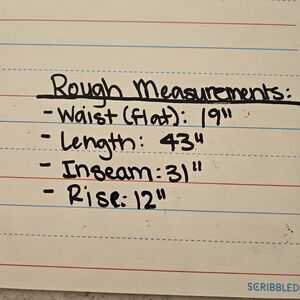 Rough Measurements:
- Waist (flat): 19"
- Length: 43"
- Inseam: 31"
- Rise: 12"
SCRIBBLED